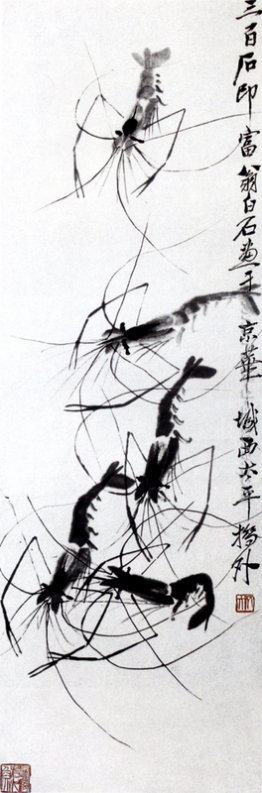 三百石印富翁白石画于京华城西太平桥外